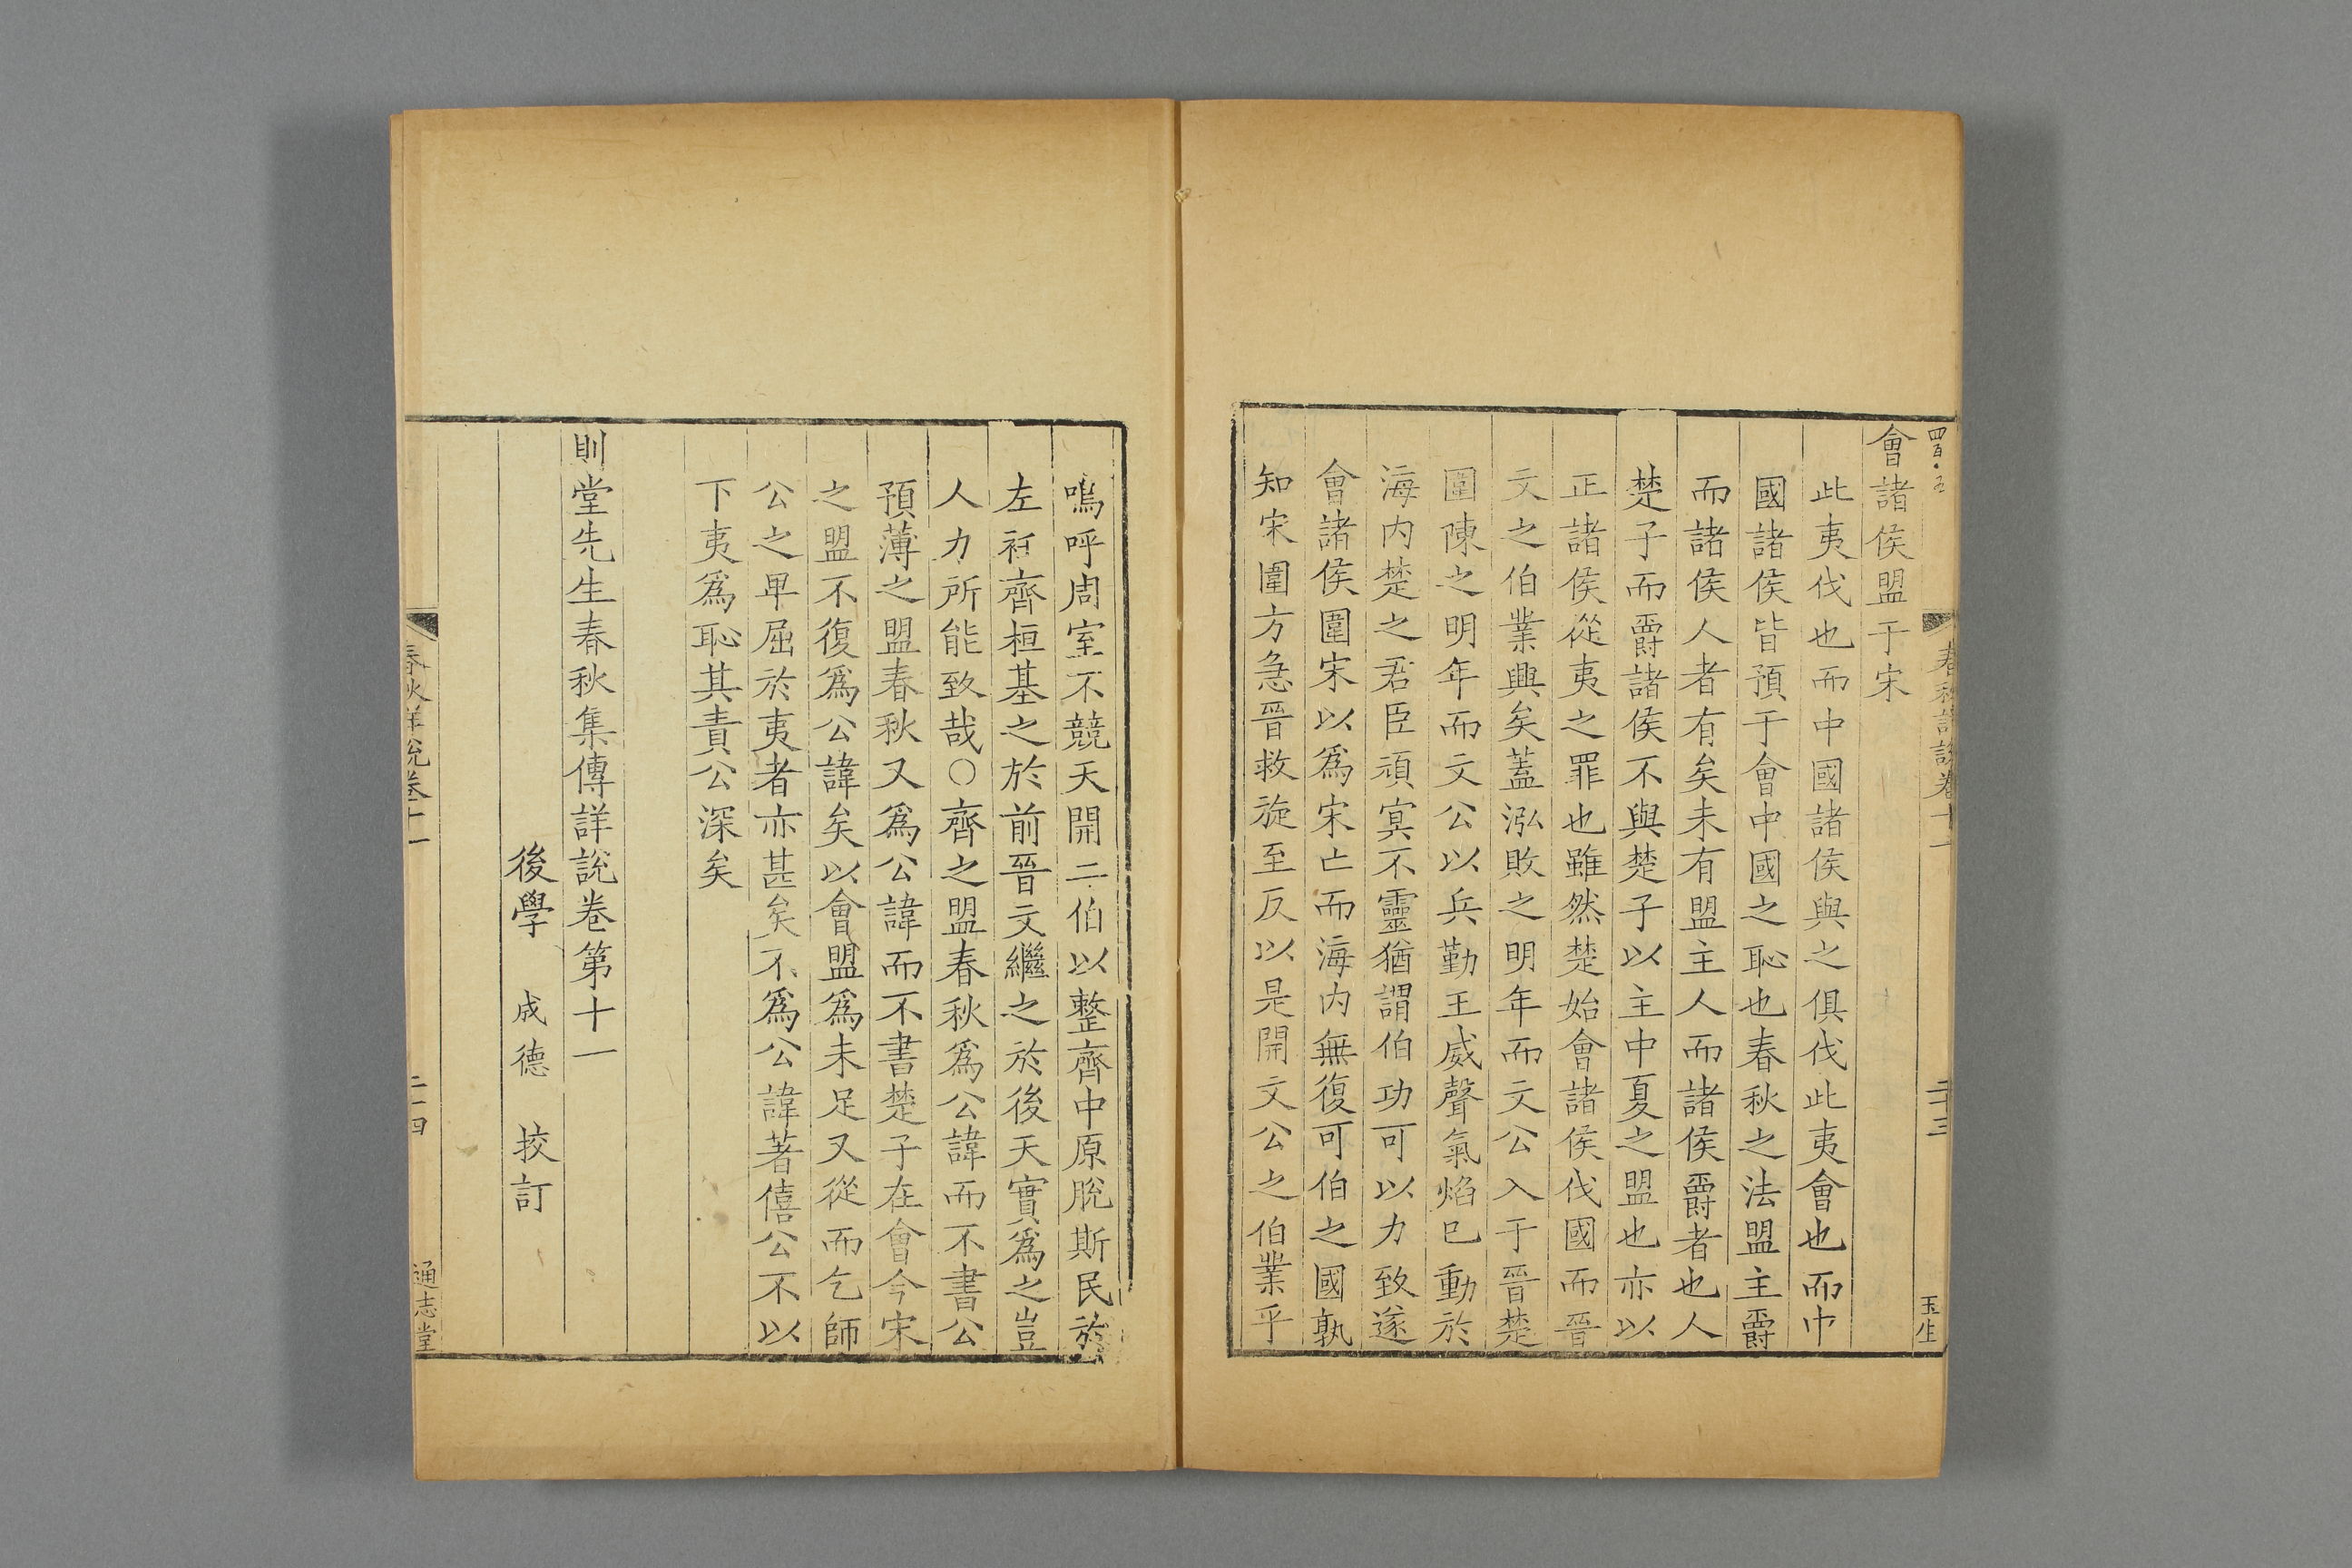 春秋詳說卷十一
二十三
玉生
會諸侯盟于宋
此夷伐也而中國諸侯與之俱伐此夷會也而中
國諸侯皆預于會中國之恥也春秋之法盟主爵
而諸侯人者有矣未有盟主人而諸侯爵者也人
楚子而爵諸侯不與楚子以主中夏之盟也亦以
正諸侯從夷之罪也雖然楚始會諸侯伐國而晉
文之伯業興矣蓋泓敗之明年而文公入于晉楚
圍陳之明年而文公以兵勤王威聲氣焰巳動於
海内楚之君臣頑冥不靈猶謂伯功可以力致遂
會諸侯圍宋以爲宋亡而海内無復可伯之國孰
知宋圍方急晉救旋至反以是開文公之伯業乎
嗚呼周室不競天開二伯以整齊中原脫斯民於
左衽齊桓基之於前晉文繼之於後天實爲之豈
人力所能致哉○齊之盟春秋爲公諱而不書公
預薄之盟春秋又爲公諱而不書楚子在會今宋
之盟不復爲公諱矣以會盟爲未足又從而乞師
公之卑屈於夷者亦甚矣不爲公諱著僖公不以
下夷爲恥其責公深矣
則堂先生春秋集傳詳說卷第十一
後學 成德 挍訂
春秋詳說卷十一
二十四
通志堂